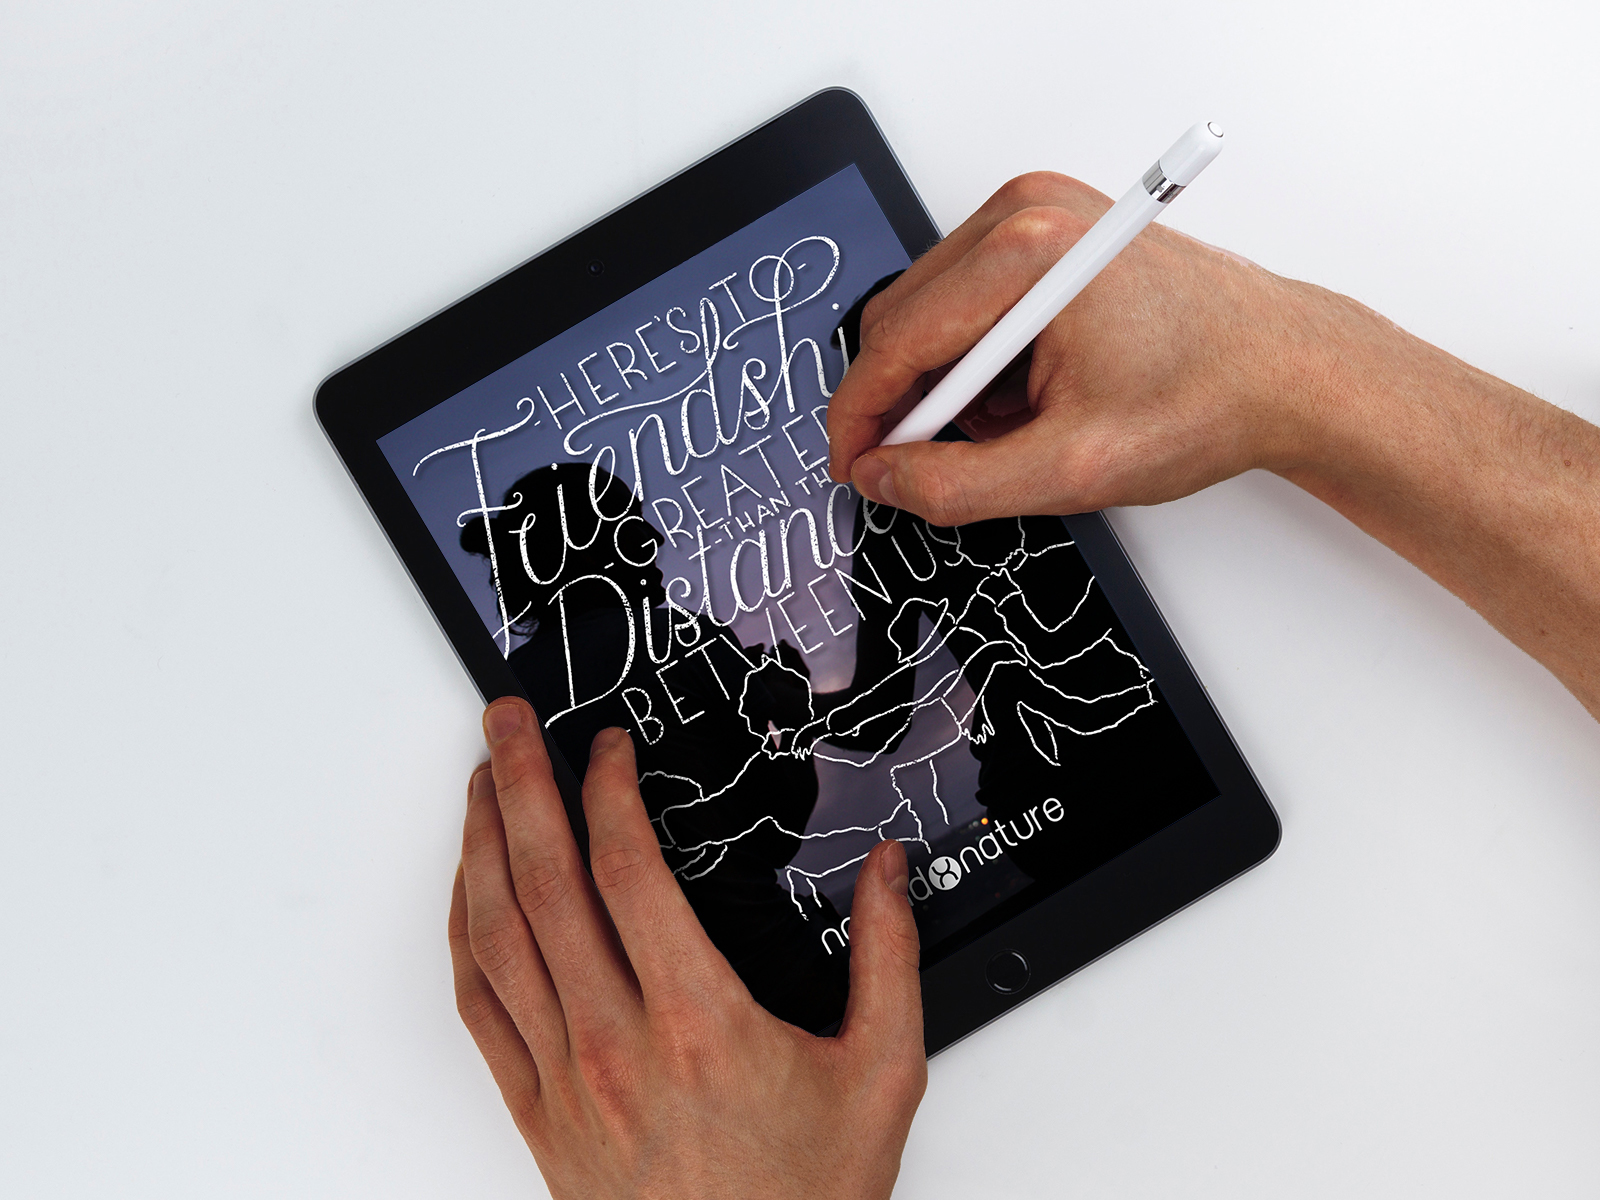 -HERE'S TO-
Friendshi
-GREATER
-THAN TH
Distance
-BETWEEN US
nature